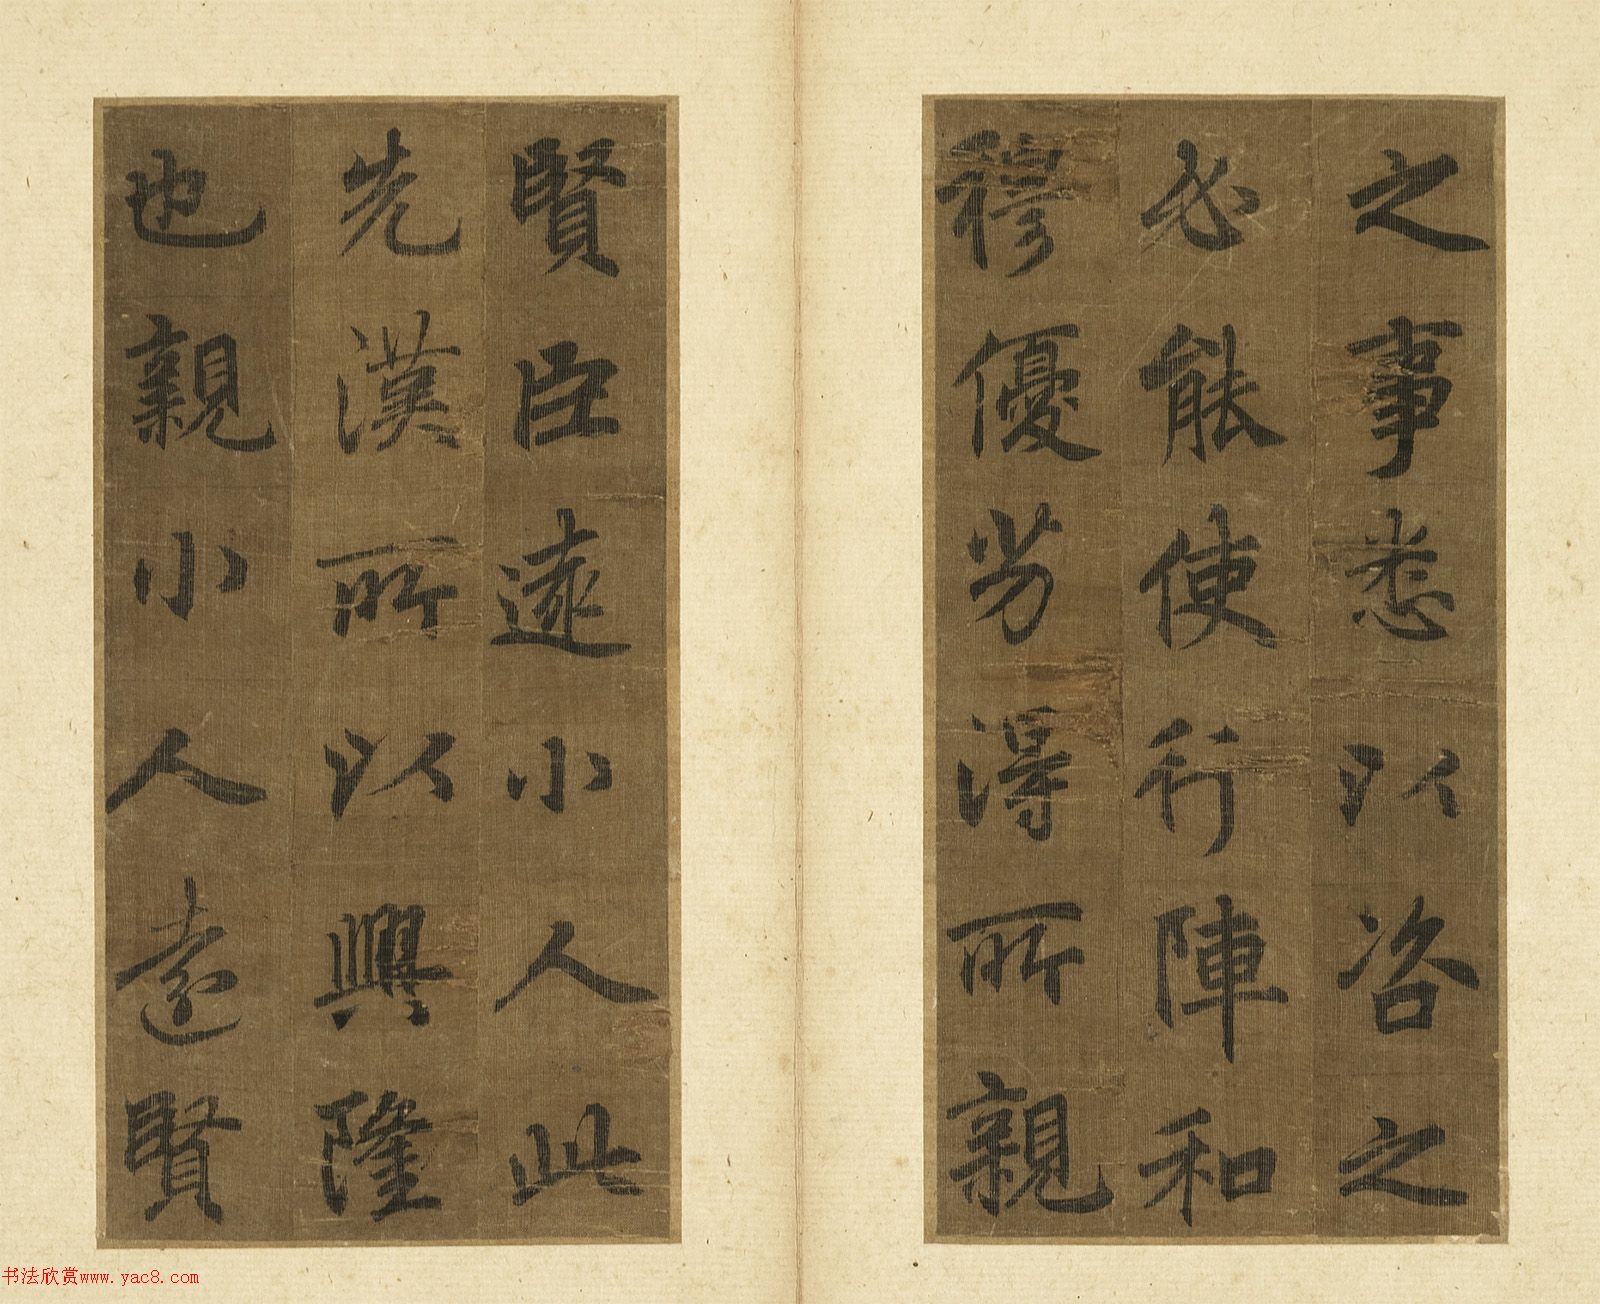 之事悉以咨之
必能使行陣和
穆優劣得所親
賢臣遠小人此
先漢所以興隆
也親小人遠賢
书法欣赏www.yac8.com